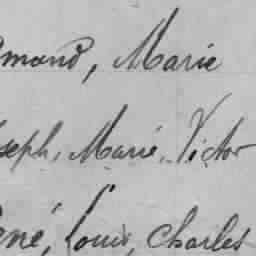 mond, Marie
seph, Marie, Victor
ené, Louis, Charles